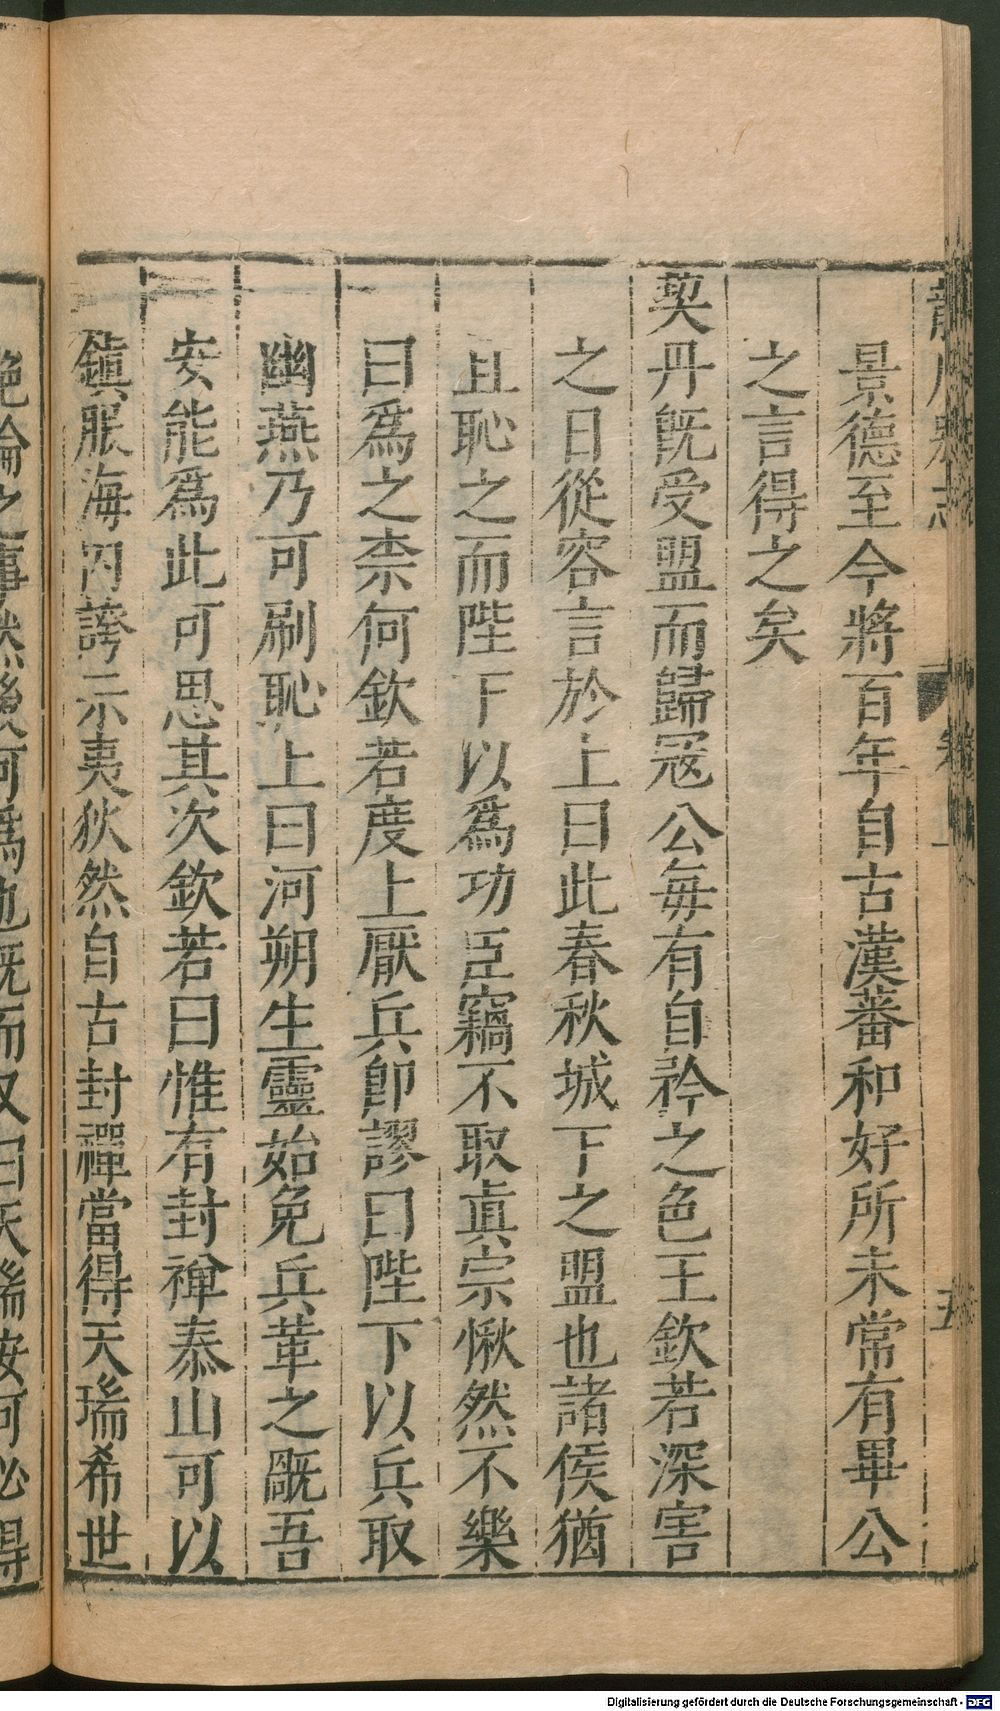 龍川畧志
卷一
五
景德至今將百年自古漢蕃和好所未常有畢公
之言得之矣
契丹旣受盟而歸冦公每有自矜之色王欽若深害
之日從容言於上曰此春秋城下之盟也諸侯猶
且恥之而陛下以爲功臣竊不取眞宗愀然不樂
曰爲之柰何欽若度上厭兵卽謬曰陛下以兵取
幽燕乃可刷恥上曰河朔生靈始免兵革之𣪁吾
安能爲此可思其次欽若曰惟有封禪泰山可以
鎭服海內誇示夷狄然自古封禪當得天瑞希世
絶倫之事然後可爲也旣而又曰天瑞安可必得
Digitalisierung gefördert durch die Deutsche Forschungsgemeinschaft - DFG